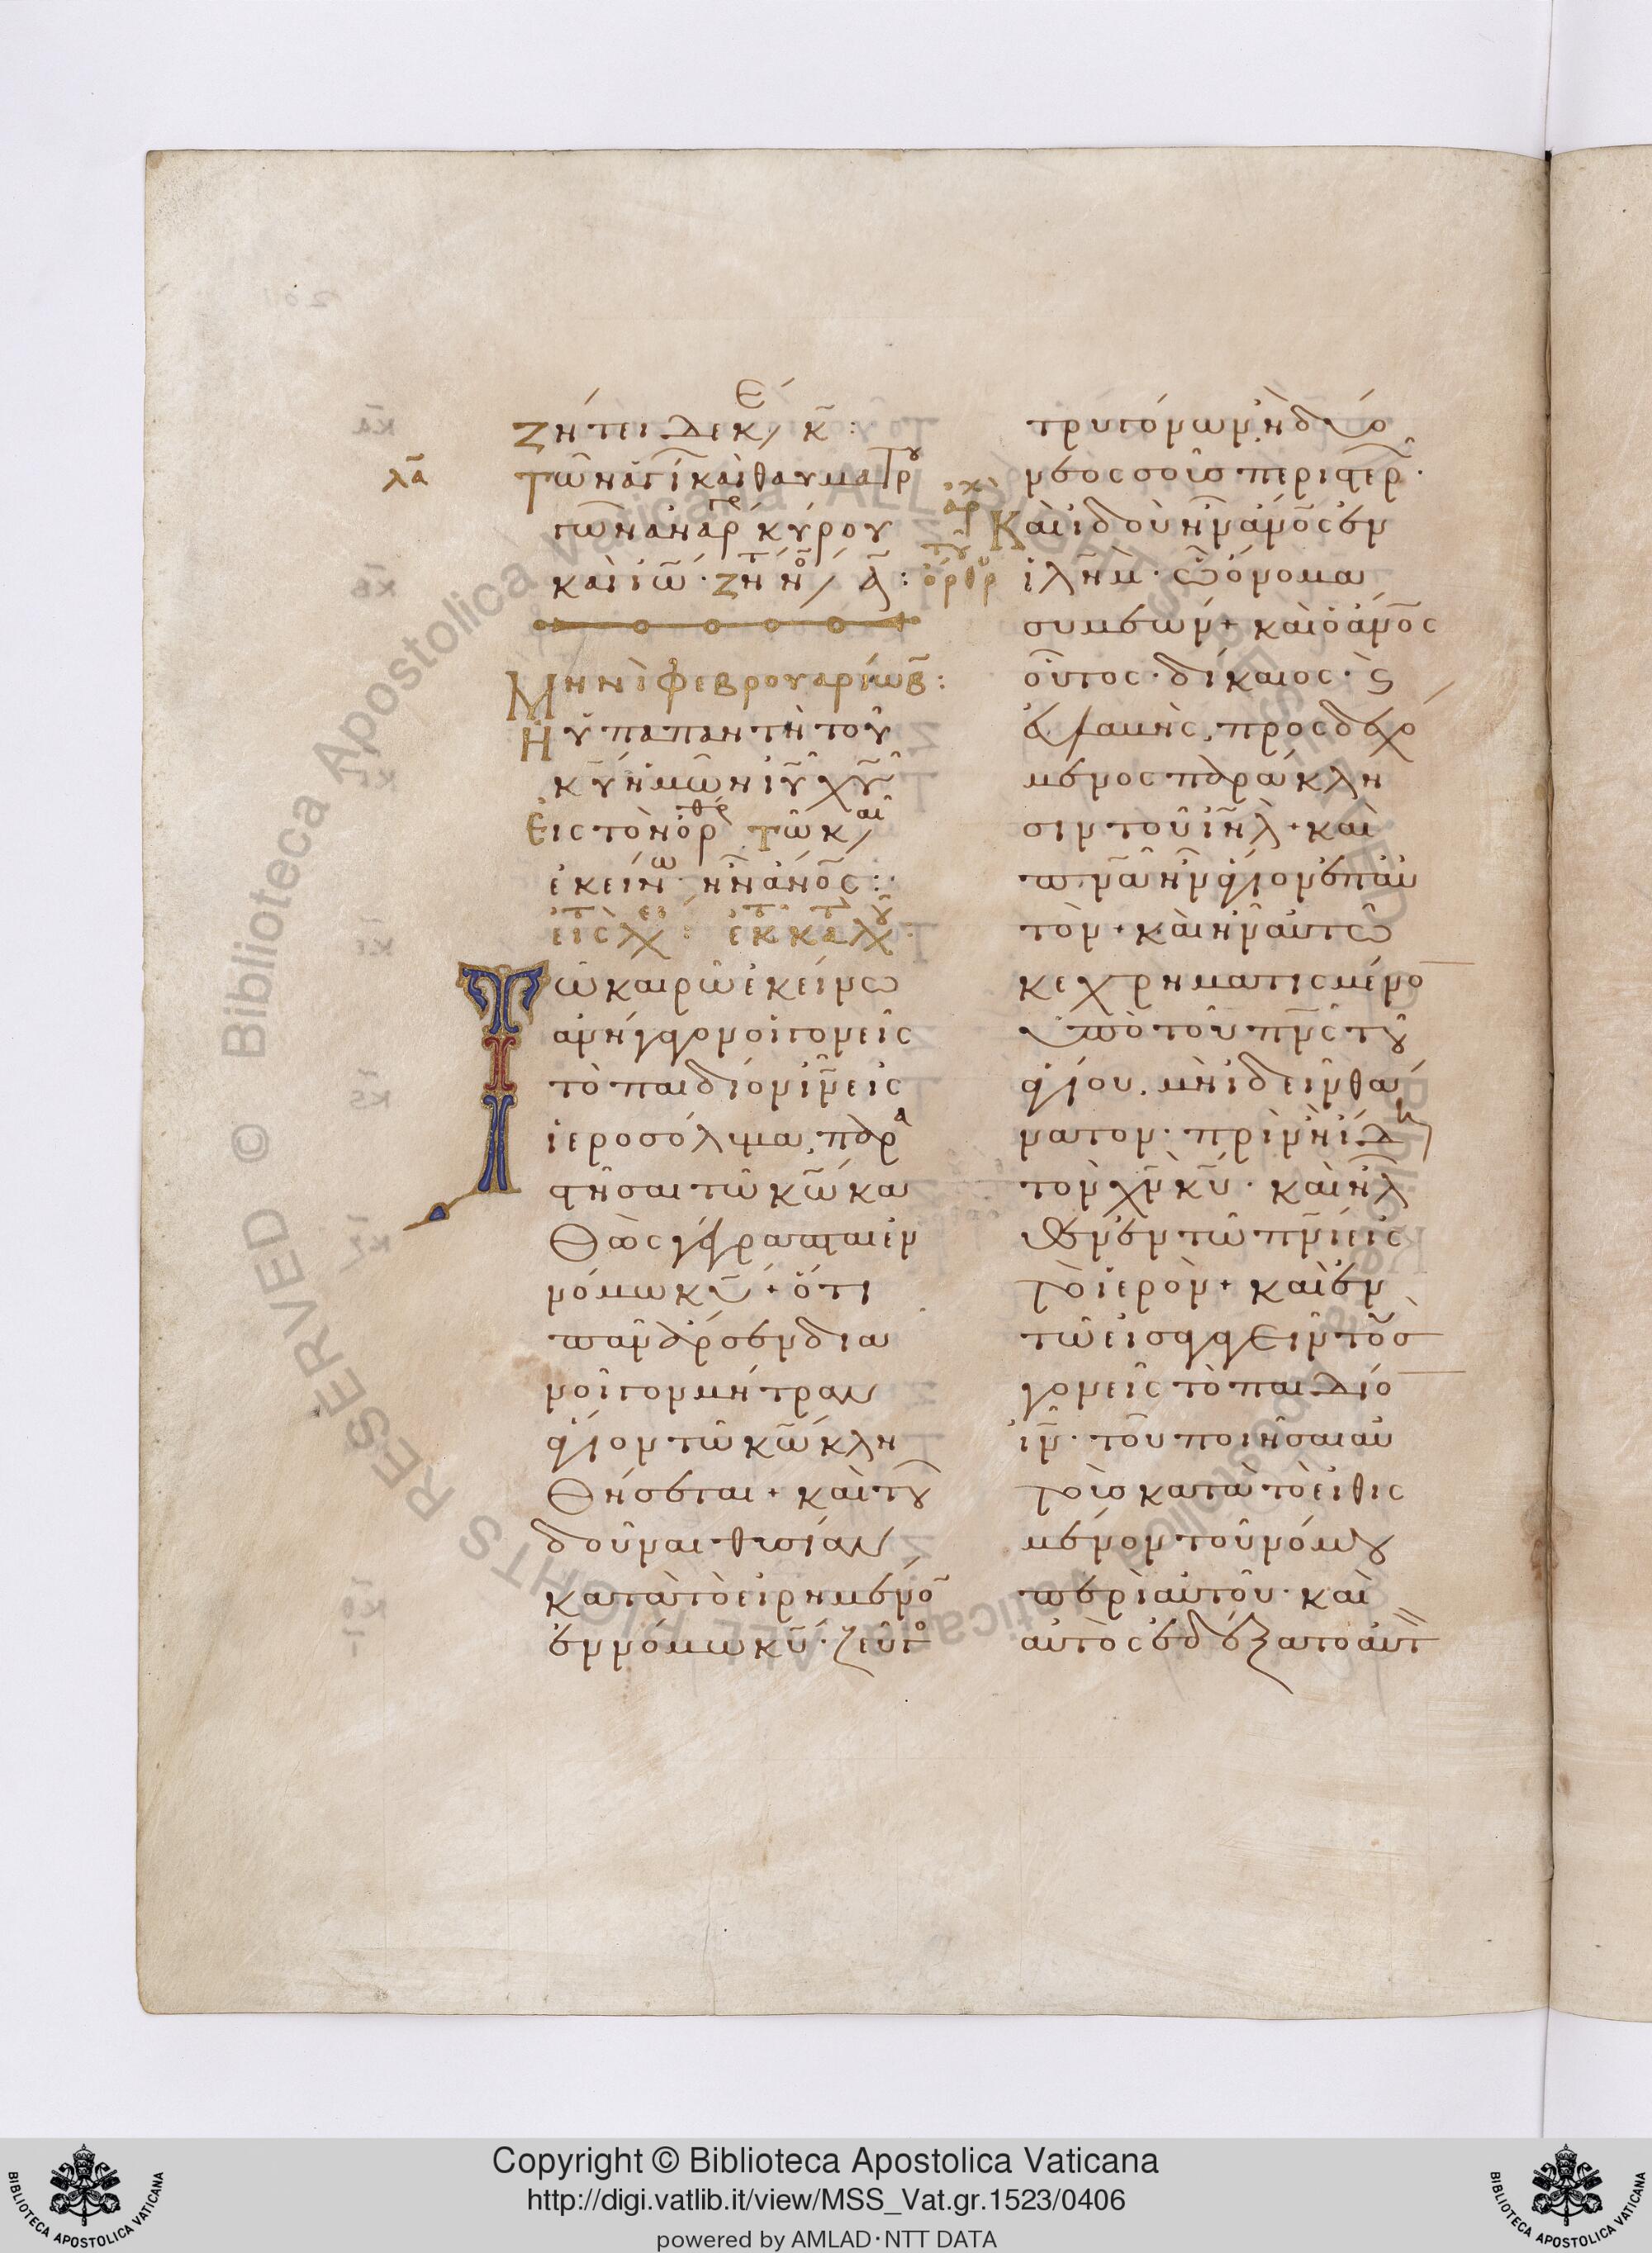 ζήτει δεκ/ κ̄:
λᾱ
τῶν ἁγί καὶ θαυματρ
τῶν ἀναρ κύρου
καὶ ἰω̄. ζη νο/ ᾱ:
Μηνὶ φεβρουαρίω β̄:
Ἡ ὑπαπαντὴ τοῦ
κ̄υ ἡμῶν ῑυ χ̄υ
Εἰς τὸν ὄρθρ Τῶ κ/αι
ἐκείνω ἦν ἄν̄ος:
Τῶ καιρῶ ἐκείνω
ἀνήγαγον οἱ γονεῖς
τὸ παιδίον ῑν εἰς
ἱεροσόλυμα, παρα
στῆσαι τῶ κ̄ω κα
θὼς γέγραπται ἐν
νόμω κ̄υ + ὅτι
πᾶν ἄρσεν δια
νοῖγον μήτραν
ἅγιον τῶ κ̄ω κλη
θήσεται + καὶ τοῦ
δοῦναι θυσίαν
κατὰ τὸ εἰρημένο
ἐν νόμω κ̄υ. ζεῦγο
τρυγόνων ἢ δύο
νεοσσοὺς περιστερ.
Καὶ ἰδοὺ ἦν ἄν̄ος ἐν
ῑλημ. ὧ ὄνομα
συμεών + καὶ ὁ ἄν̄ος
οὗτος. δίκαιος. ς
εὐλαβὴς, προσδεχό
μενος παράκλη
σιν τοῦ ῑηλ + καὶ
π̄να ἦν ἅγιον ἐπ αὐ
τόν + καὶ ἦν αὐτῶ
κεχρηματισμένο
ὑπὸ τοῦ π̄νς τοῦ
ἁγίου. μὴ ἰδεῖν θά
νατον. πρὶν ἢ ἴδη
τὸν χ̄ν κ̄υ. καὶ ἦλ
θεν ἐν τῶ π̄νι εἰς
τὸ ἱερόν + καὶ ἐν
τῶ εἰσαγαγεῖν τοὺσ
γονεῖς τὸ παιδίο
ῑν. τοῦ ποιῆσαι αὐ
τοὺς κατὰ τὸ εἰθις
μένον τοῦ νόμου
περὶ αὐτοῦ. καὶ
αὐτὸς ἐδέξατο αὐτ
Copyright © Biblioteca Apostolica Vaticana
http://digi.vatlib.it/view/MSS_Vat.gr.1523/0406
powered by AMLAD·NTT DATA
BIBLIOTECA APOSTOLICA VATICANA
BIBLIOTECA APOSTOLICA VATICANA
© Biblioteca Apostolica Vaticana ALL RIGHTS RESERVED